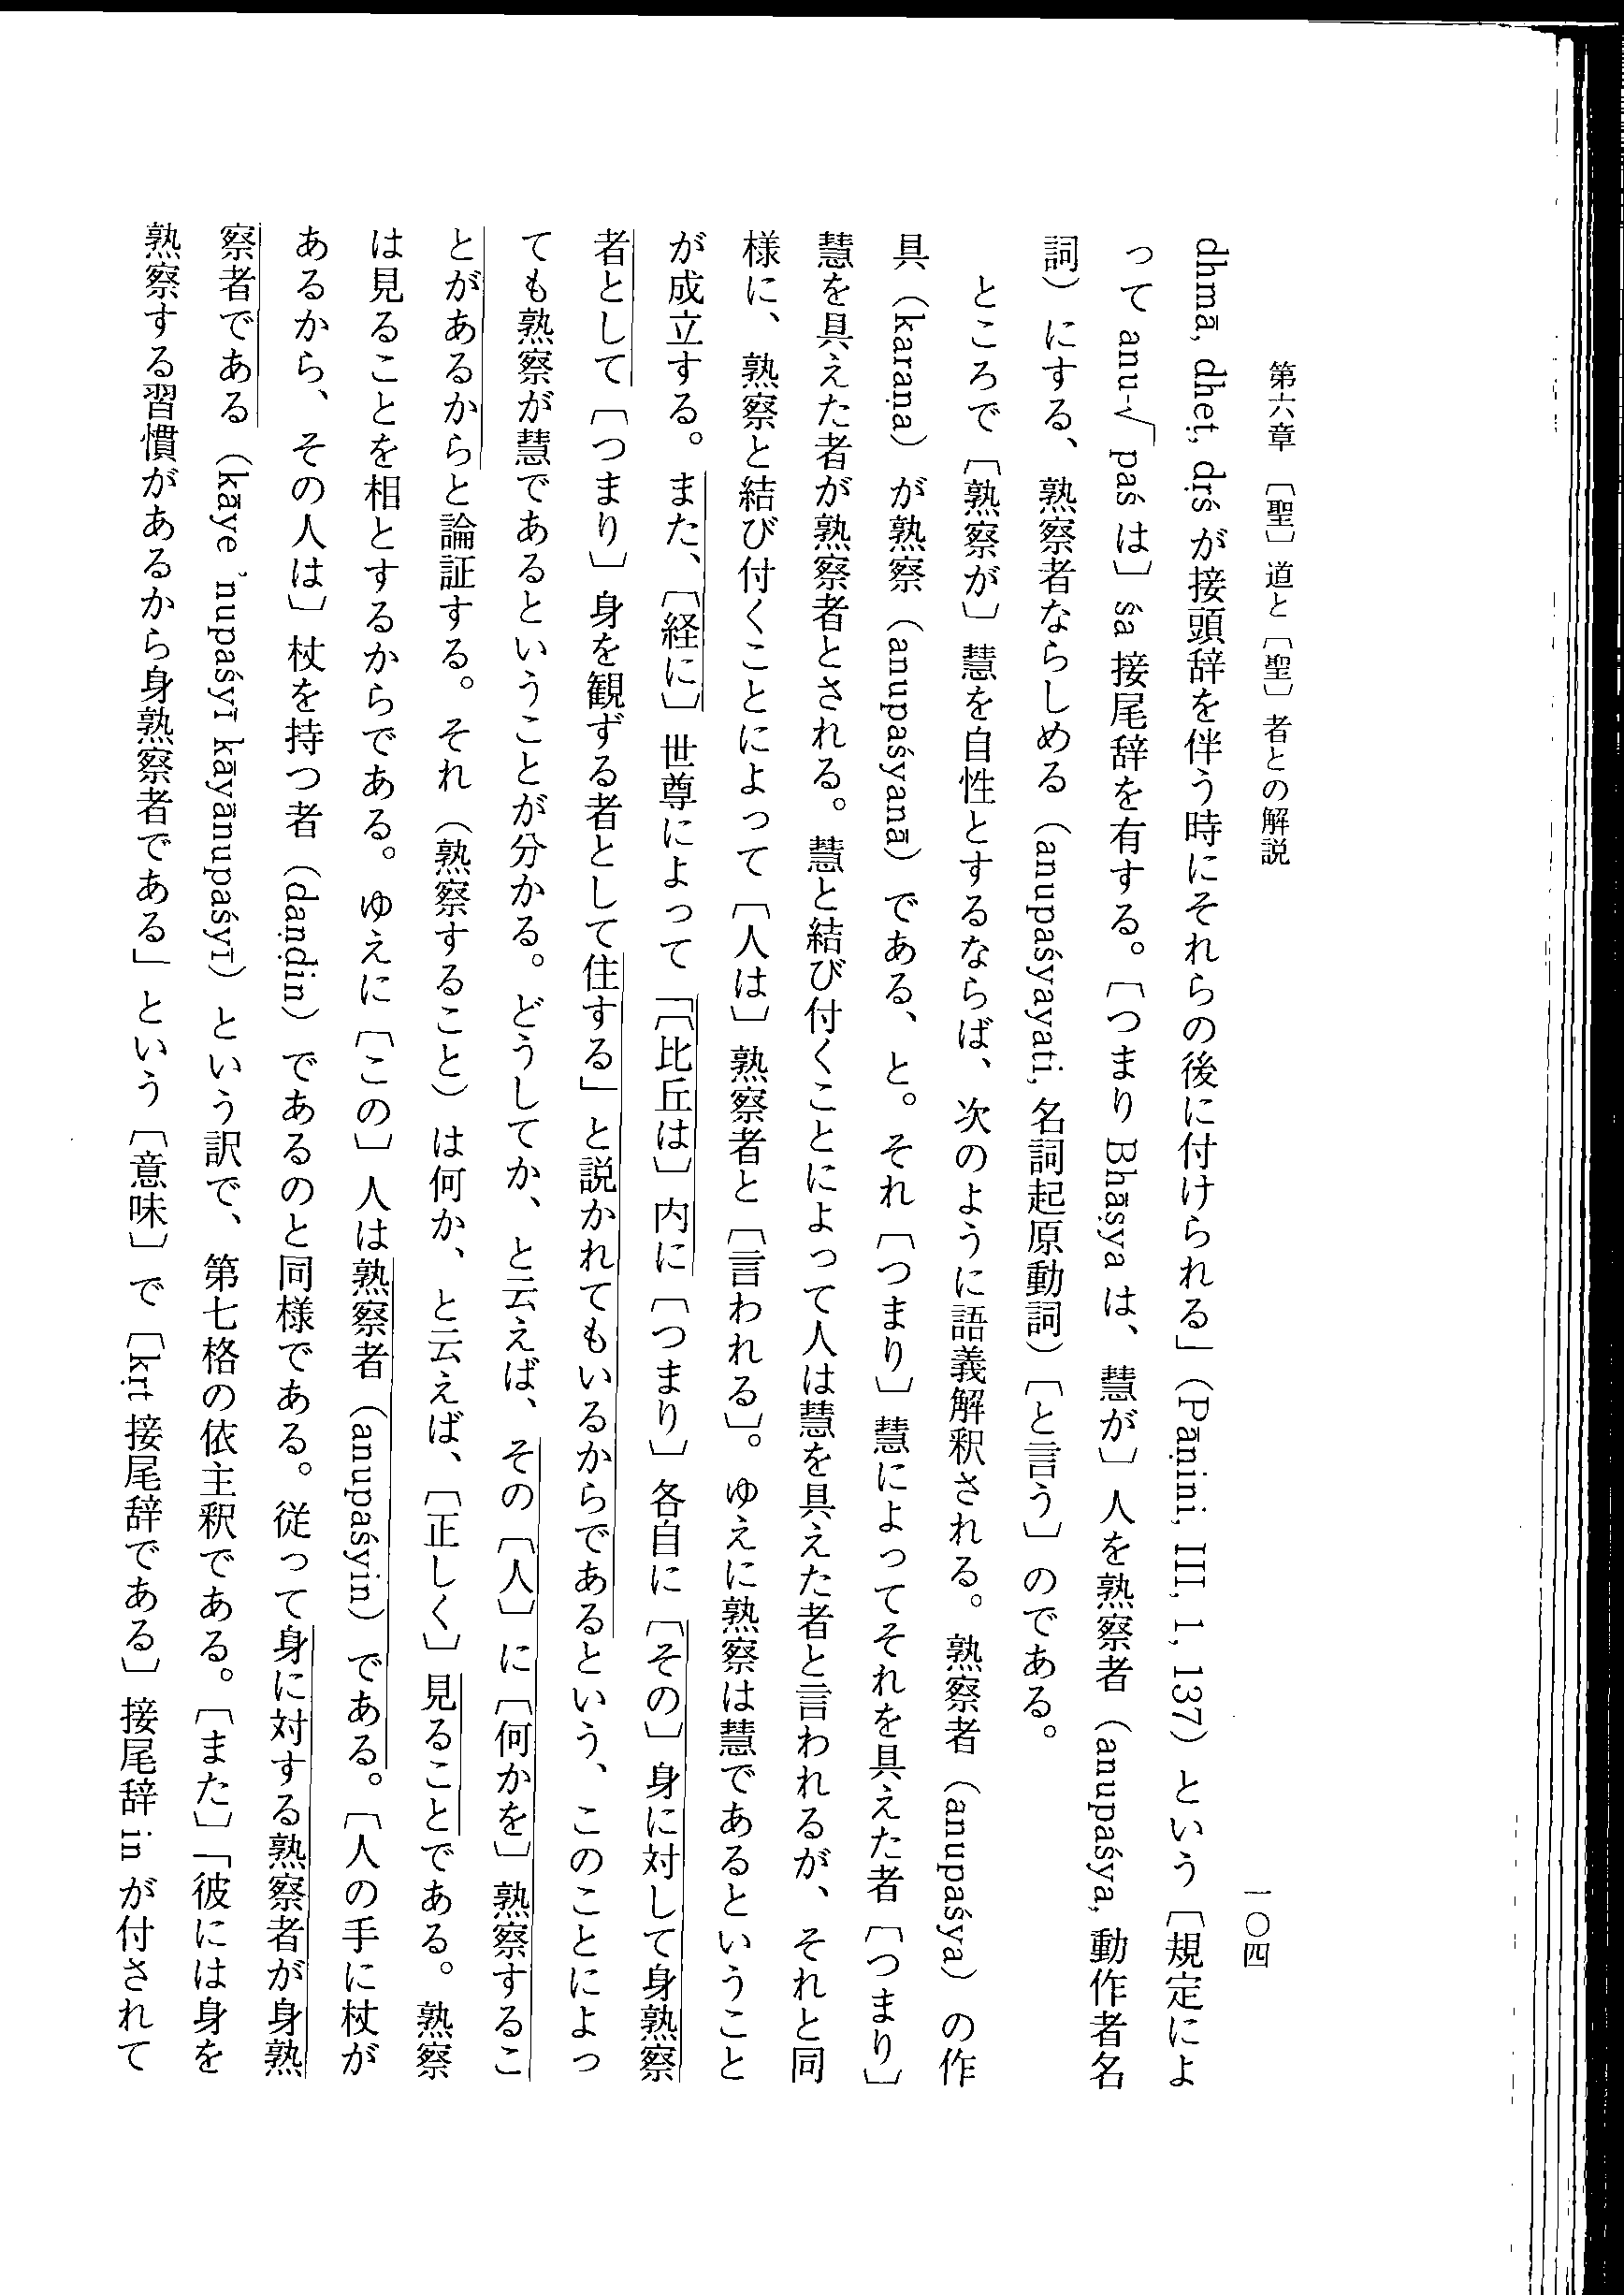 第六章　〔聖〕道と〔聖〕者との解説
一〇四
dhmā, dheṭ, dṛś が接頭辞を伴う時にそれらの後に付けられる」（Pāṇini, III, 1, 137）という〔規定によ
って anu-√paś は〕śa 接尾辞を有する。〔つまり Bhāṣya は、慧が〕人を熟察者（anupaśya, 動作者名
詞）にする、熟察者ならしめる（anupaśyayati, 名詞起原動詞）〔と言う〕のである。
　ところで〔熟察が〕慧を自性とするならば、次のように語義解釈される。熟察者（anupaśya）の作
具（karaṇa）が熟察（anupaśyanā）である、と。それ〔つまり〕慧によってそれを具えた者〔つまり〕
慧を具えた者が熟察者とされる。慧と結び付くことによって人は慧を具えた者と言われるが、それと同
様に、熟察と結び付くことによって〔人は〕熟察者と〔言われる〕。ゆえに熟察は慧であるということ
が成立する。また、〔経に〕世尊によって「〔比丘は〕内に〔つまり〕各自に〔その〕身に対して身熟察
者として〔つまり〕身を観ずる者として住する」と説かれてもいるからであるという、このことによっ
ても熟察が慧であるということが分かる。どうしてか、と云えば、その〔人〕に〔何かを〕熟察するこ
とがあるからと論証する。それ（熟察すること）は何か、と云えば、〔正しく〕見ることである。熟察
は見ることを相とするからである。ゆえに〔この〕人は熟察者（anupaśyin）である。〔人の手に杖が
あるから、その人は〕杖を持つ者（daṇḍin）であるのと同様である。従って身に対する熟察者が身熟
察者である（kāye 'nupaśyī kāyānupaśyī）という訳で、第七格の依主釈である。〔また〕「彼には身を
熟察する習慣があるから身熟察者である」という〔意味〕で〔kṛt 接尾辞である〕接尾辞 in が付されて